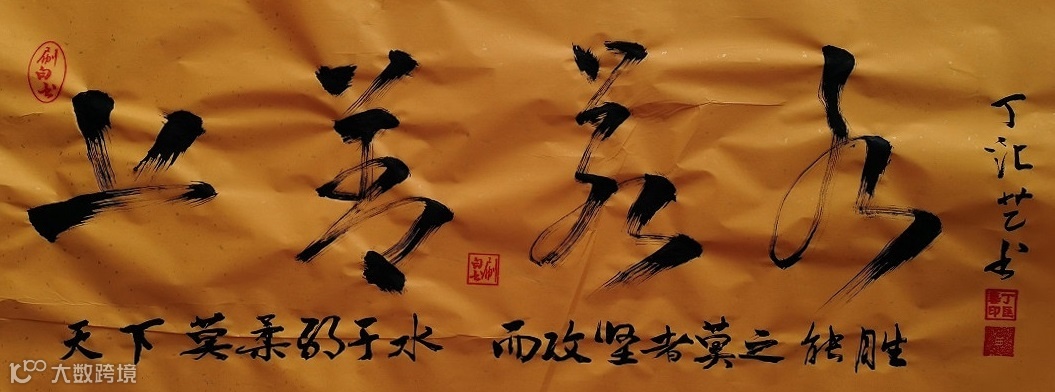 上善若水
丁汇艺书
天下莫柔弱于水 而攻坚者莫之能胜
大数跨境